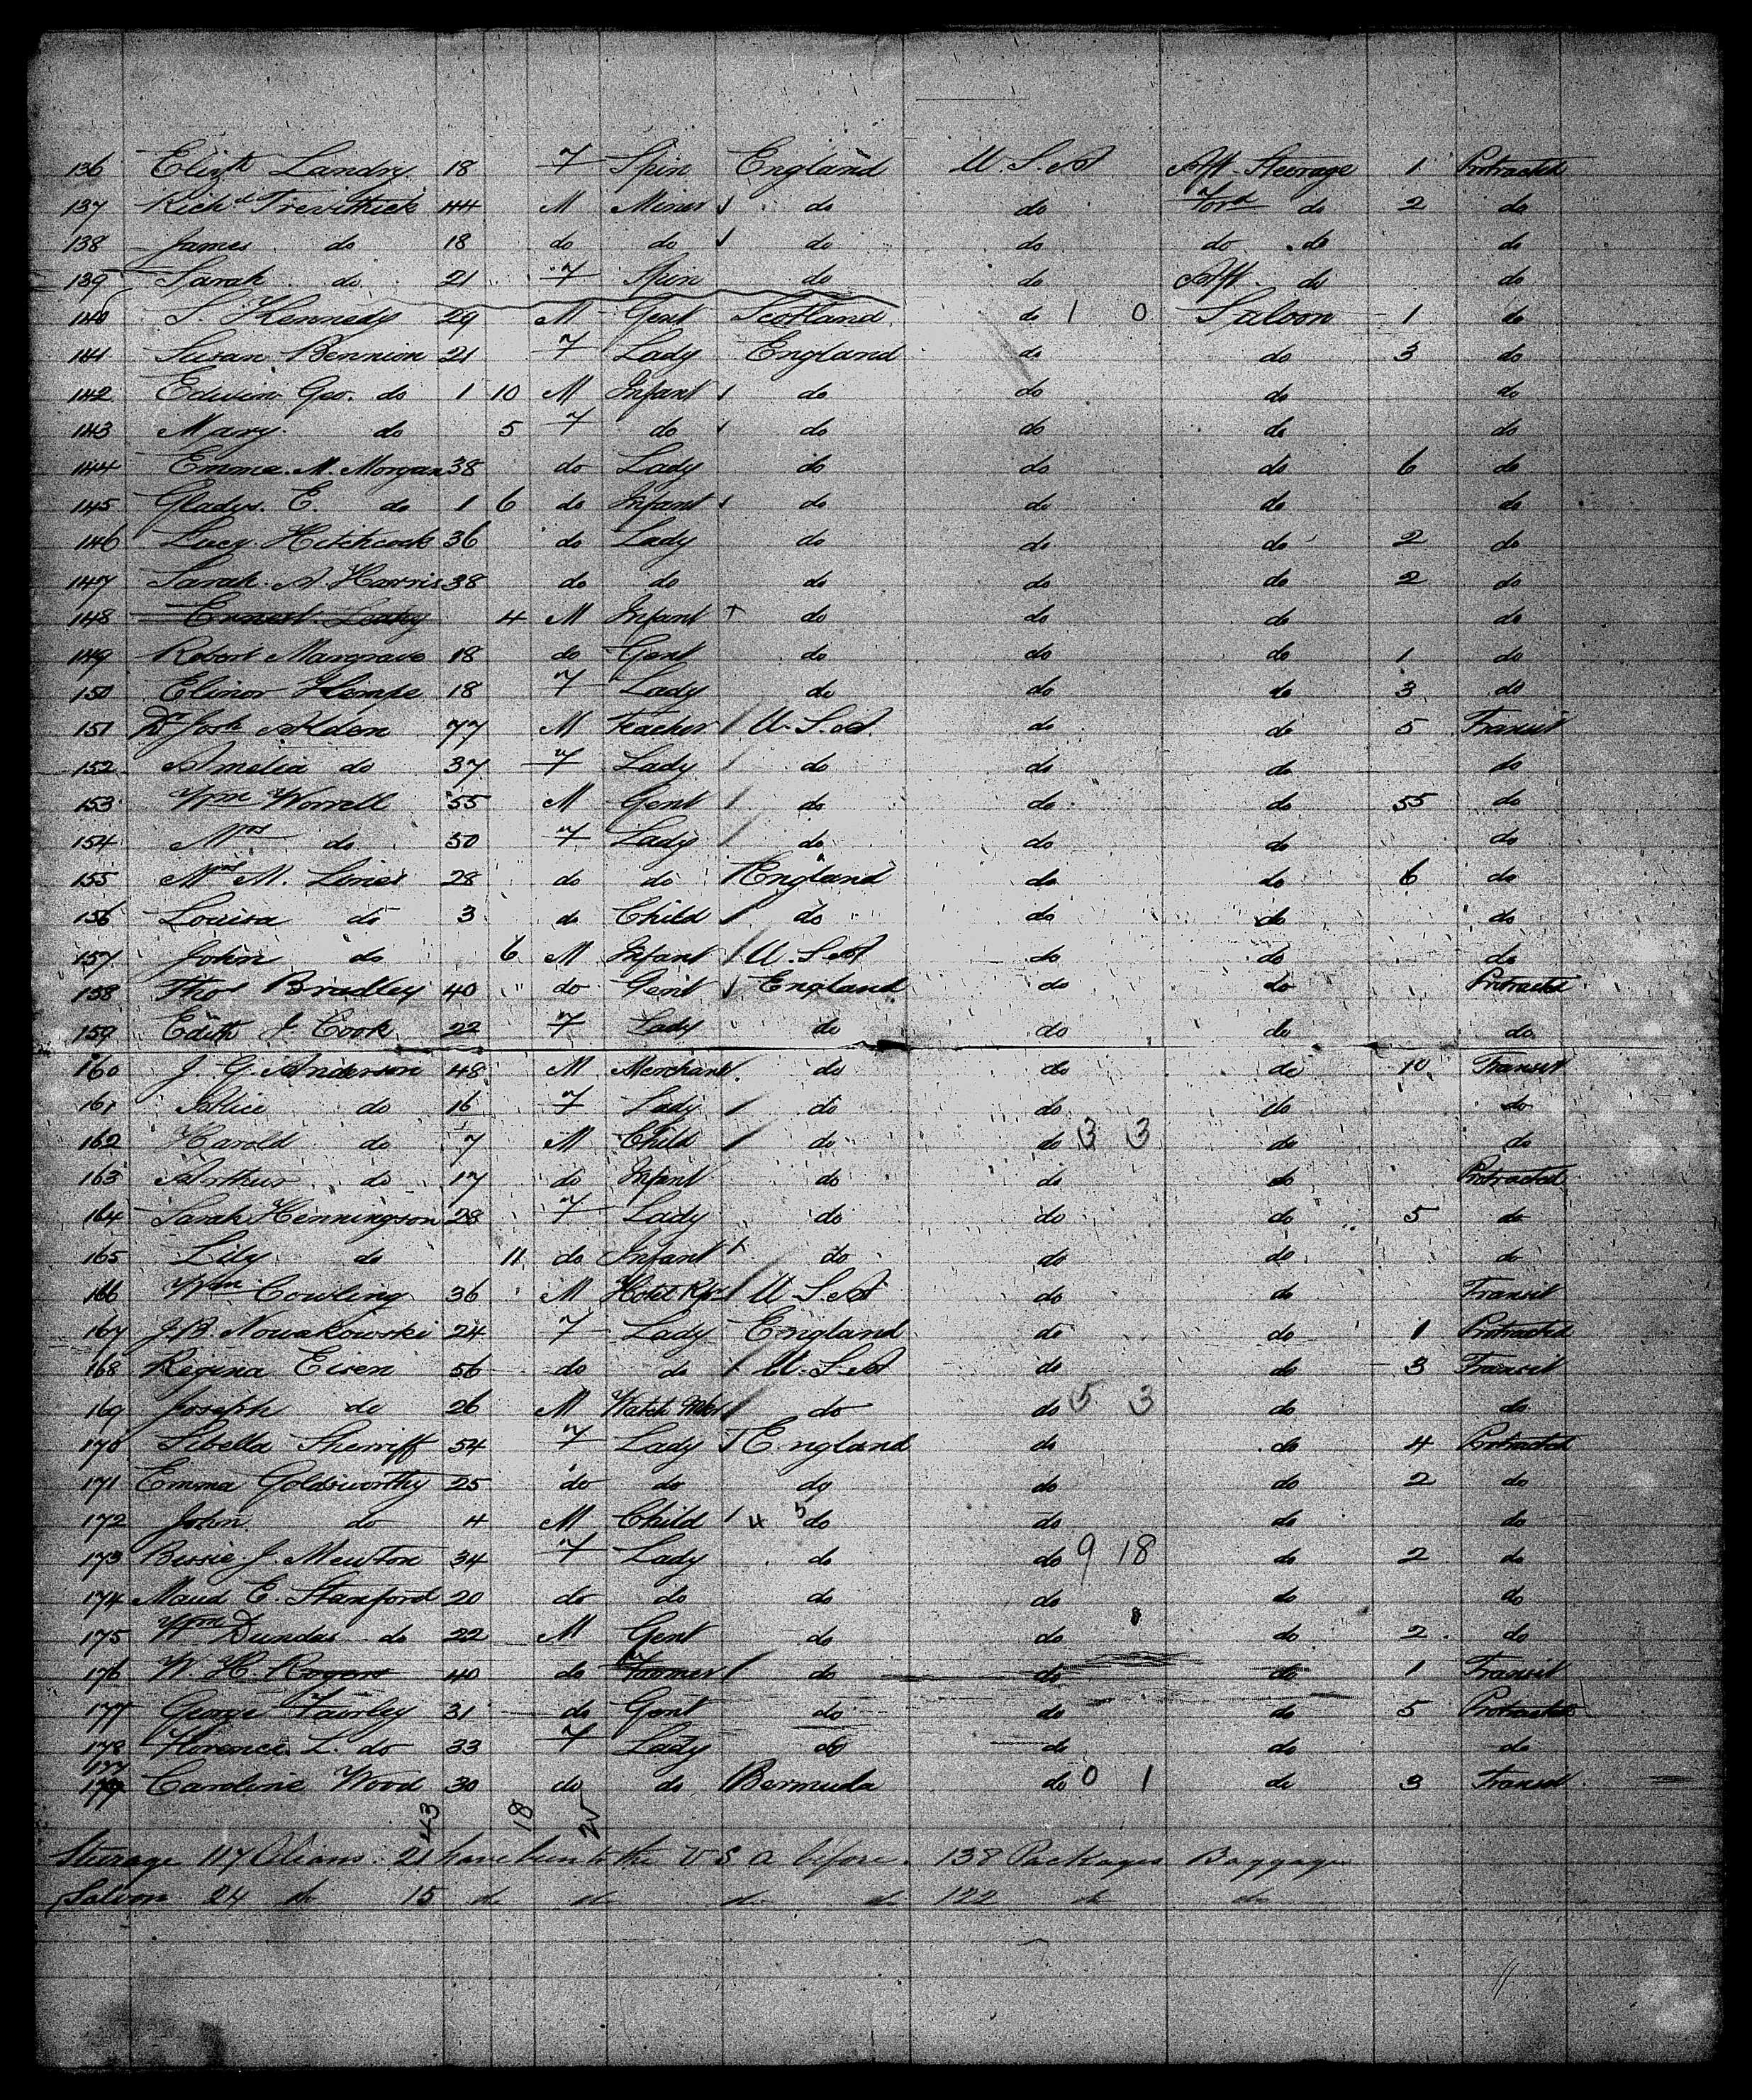 136 Elizth Landry 18 F Spin England U.S.A Aft Steerage 1 Protracted
137 Richd Trevithick 44 M Miner do do Ford do 2 do
138 James do 18 do do do do do do do
139 Sarah do 21 F Spin do do Aft do do
140 S. Kennedy 29 M Gent Scotland do 1 0 Saloon 1 do
141 Susan Bennion 21 F Lady England do do 3 do
142 Edwin Geo. do 1 10 M Infant do do do do
143 Mary do 5 F do do do do do
144 Emma. M. Morgan 38 do Lady do do do 6 do
145 Gladys. E. do 1 6 do Infant do do do do
146 Lucy Hitchcock 36 do Lady do do do 2 do
147 Sarah A. Harris 38 do do do do do 2 do
148 Ernest 4 M Infant do do do do
149 Robert Margrave 18 do Gent do do do 1 do
150 Elinor Kempe 18 F Lady do do do 3 do
151 Dr Josh Alden 77 M Teacher U.S.A. do do 5 Transit
152 Amelia do 37 F Lady do do do do
153 Wm Worrell 55 M Gent do do do 55 do
154 Mrs do 50 F Lady do do do do
155 Mrs M. Lines 28 do do England do do 6 do
156 Louisa do 3 do Child do do do do
157 John do 6 M Infant U.S.A do do do
158 Thos Bradley 40 " do Gent England do do Protracted
159 Edith J Cook 22 F Lady do do do do
160 J. G. Anderson 48 M Merchant do do do 10 Transit
161 Alice do 16 F Lady do do do do
162 Harold do 7 M Child do do 3 3 do do
163 Arthur do 17 do Infant do do do Protracted
164 Sarah Henningson 28 F Lady do do do 5 do
165 Lily do 11 do Infant do do do do
166 Wm Cowling 36 M Hotel Kpr U.S.A do do Transit
167 J.B. Nowakowski 24 F Lady England do do 1 Protracted
168 Regina Eisen 56 do do U.S.A do do 3 Transit
169 Joseph do 26 M Watch Mkr do do 5 3 do do
170 Sibella Sherriff 54 F Lady England do do 4 Protracted
171 Emma Goldsworthy 25 do do do do do 2 do
172 John do 4 M Child 4 5 do do do do
173 Bessie J. Newton 34 F Lady do do 9 18 do 2 do
174 Maud E. Stanford 20 do do do do do do
175 Wm Dundas do 22 M Gent do do do 2 do
176 W. H. Rogers 40 do Farmer do do do 1 Transit
177 George Fairley 31 do Gent do do do 5 Protracted
178 Florence L. do 33 F Lady do do do do
177
179 Caroline Wood 30 do do Bermuda do 0 1 do 3 Transit
43 18 25
Steerage 117 Aliens. 21 have been to the U S a before. 138 Packages Baggage
Saloon 24 do 15 do do do do 122 do do